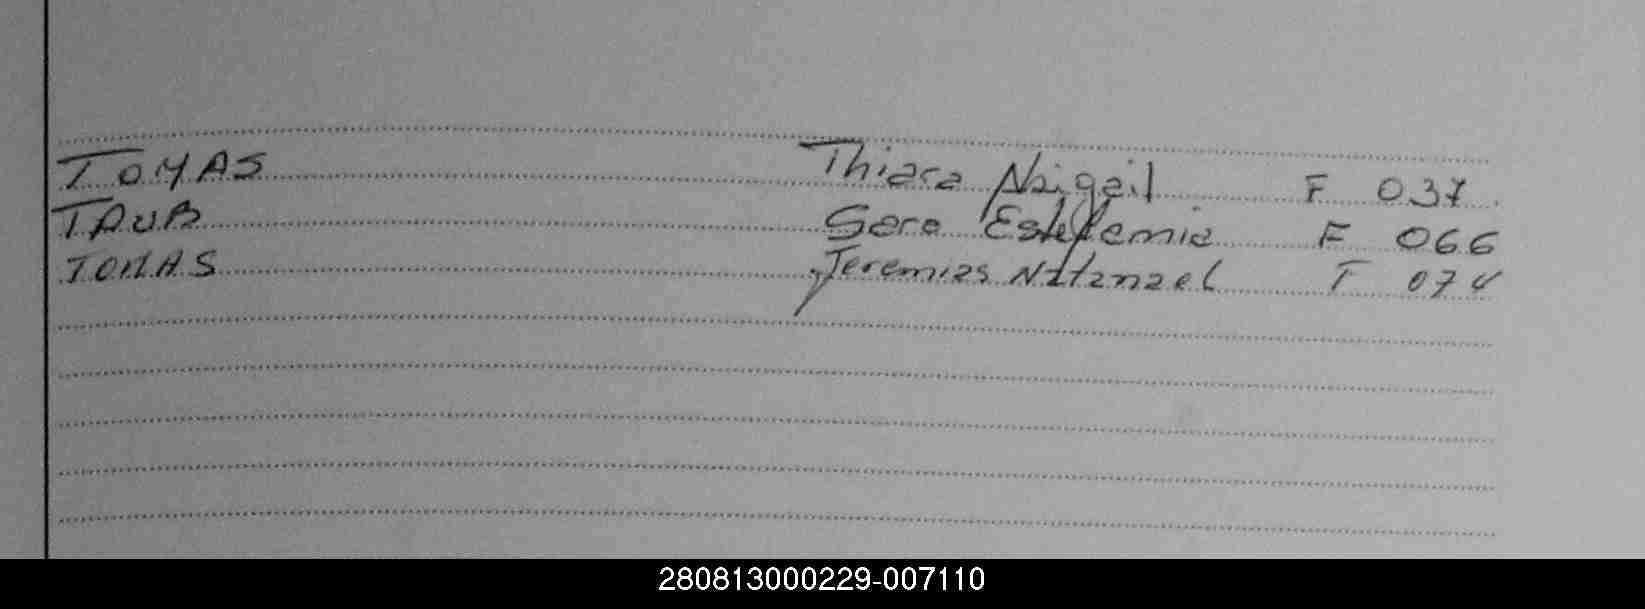 TOMAS Thiara Abigail F 037
TAUB Sara Estefania F 066
TOMAS Jeremias Natanael F 074
280813000229-007110